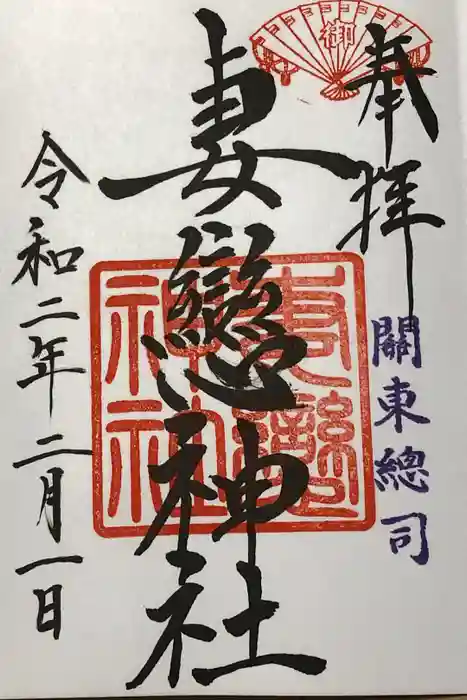 奉拝
御
關東總司
妻戀神社
令和二年二月一日